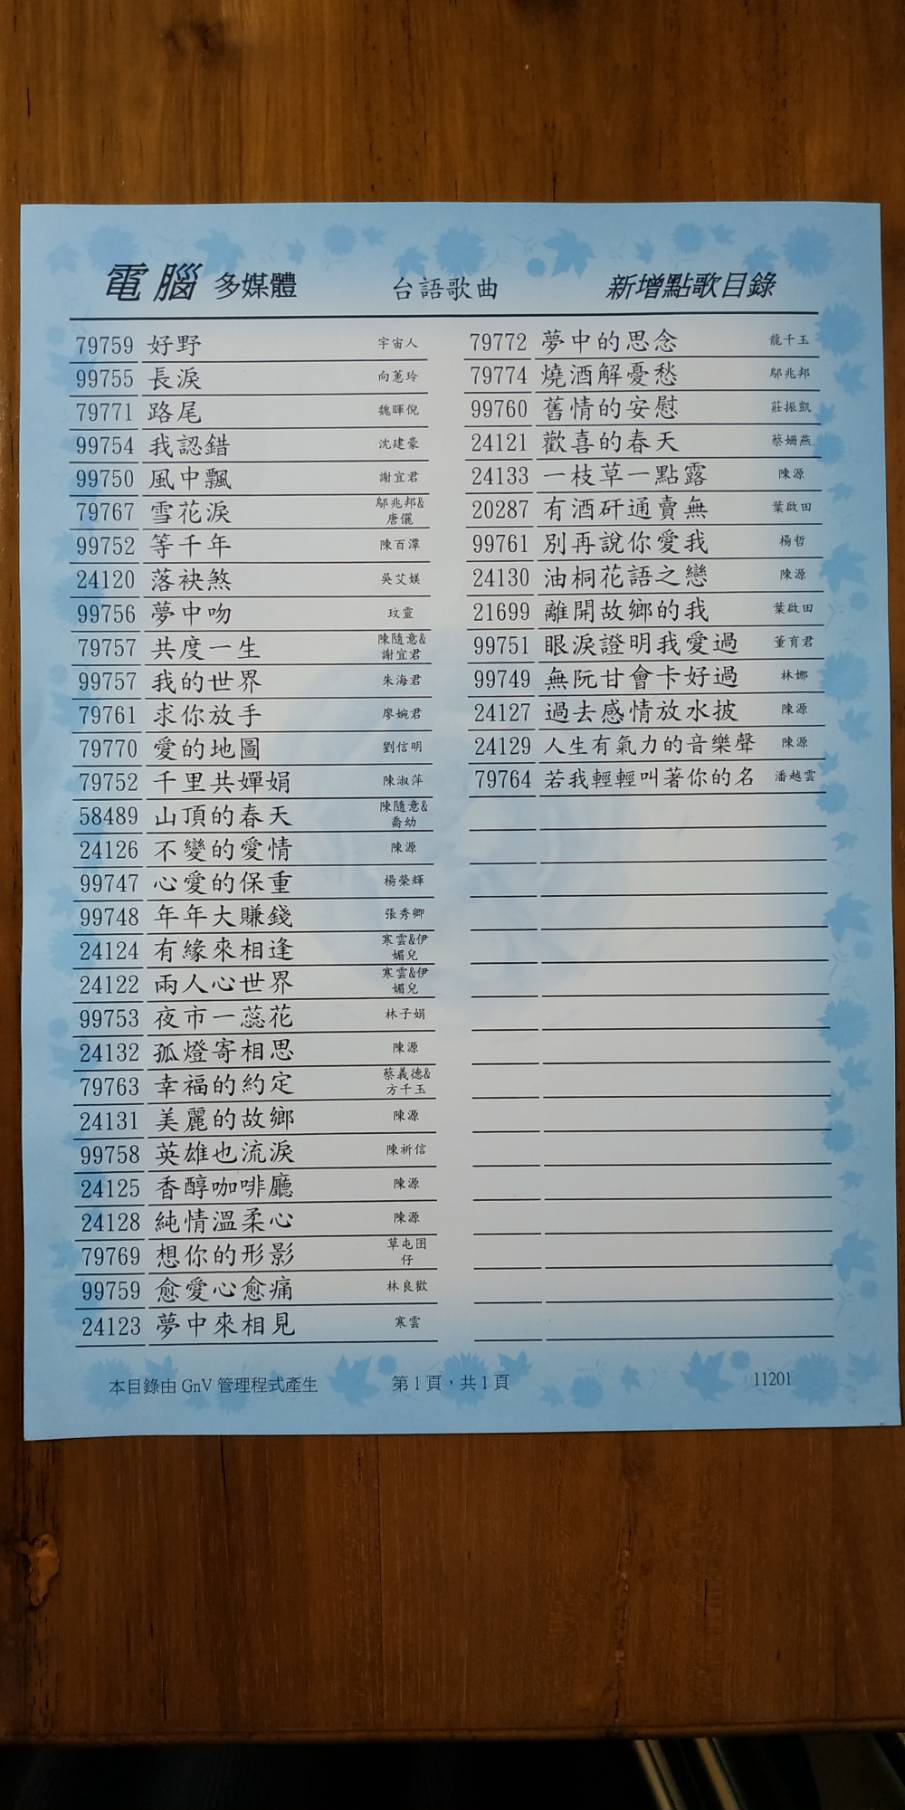 電腦 多媒體 台語歌曲 新增點歌目錄
79759 好野 宇宙人
99755 長淚 向蕙玲
79771 路尾 魏暉倪
99754 我認錯 沈建豪
99750 風中飄 謝宜君
79767 雪花淚 邬兆邦&唐儷
99752 等千年 陳百潭
24120 落袂煞 吳艾媄
99756 夢中吻 玟靈
79757 共度一生 陳隨意&謝宜君
99757 我的世界 朱海君
79761 求你放手 廖婉君
79770 愛的地圖 劉信明
79752 千里共嬋娟 陳淑萍
58489 山頂的春天 陳隨意&喬幼
24126 不變的愛情 陳源
99747 心愛的保重 楊榮輝
99748 年年大賺錢 張秀卿
24124 有緣來相逢 寒雲&伊媚兒
24122 兩人心世界 寒雲&伊媚兒
99753 夜市一蕊花 林子娟
24132 孤燈寄相思 陳源
79763 幸福的約定 蔡義德&方千玉
24131 美麗的故鄉 陳源
99758 英雄也流淚 陳祈信
24125 香醇咖啡廳 陳源
24128 純情溫柔心 陳源
79769 想你的形影 草屯囝仔
99759 愈愛心愈痛 林良歡
24123 夢中來相見 寒雲
79772 夢中的思念 龍千玉
79774 燒酒解憂愁 邬兆邦
99760 舊情的安慰 莊振凱
24121 歡喜的春天 蔡姍燕
24133 一枝草一點露 陳源
20287 有酒矸通賣無 葉啟田
99761 別再說你愛我 楊哲
24130 油桐花語之戀 陳源
21699 離開故鄉的我 葉啟田
99751 眼淚證明我愛過 董育君
99749 無阮甘會卡好過 林娜
24127 過去感情放水披 陳源
24129 人生有氣力的音樂聲 陳源
79764 若我輕輕叫著你的名 潘越雲
本目錄由 GnV 管理程式產生 第 1 頁，共 1 頁 11201